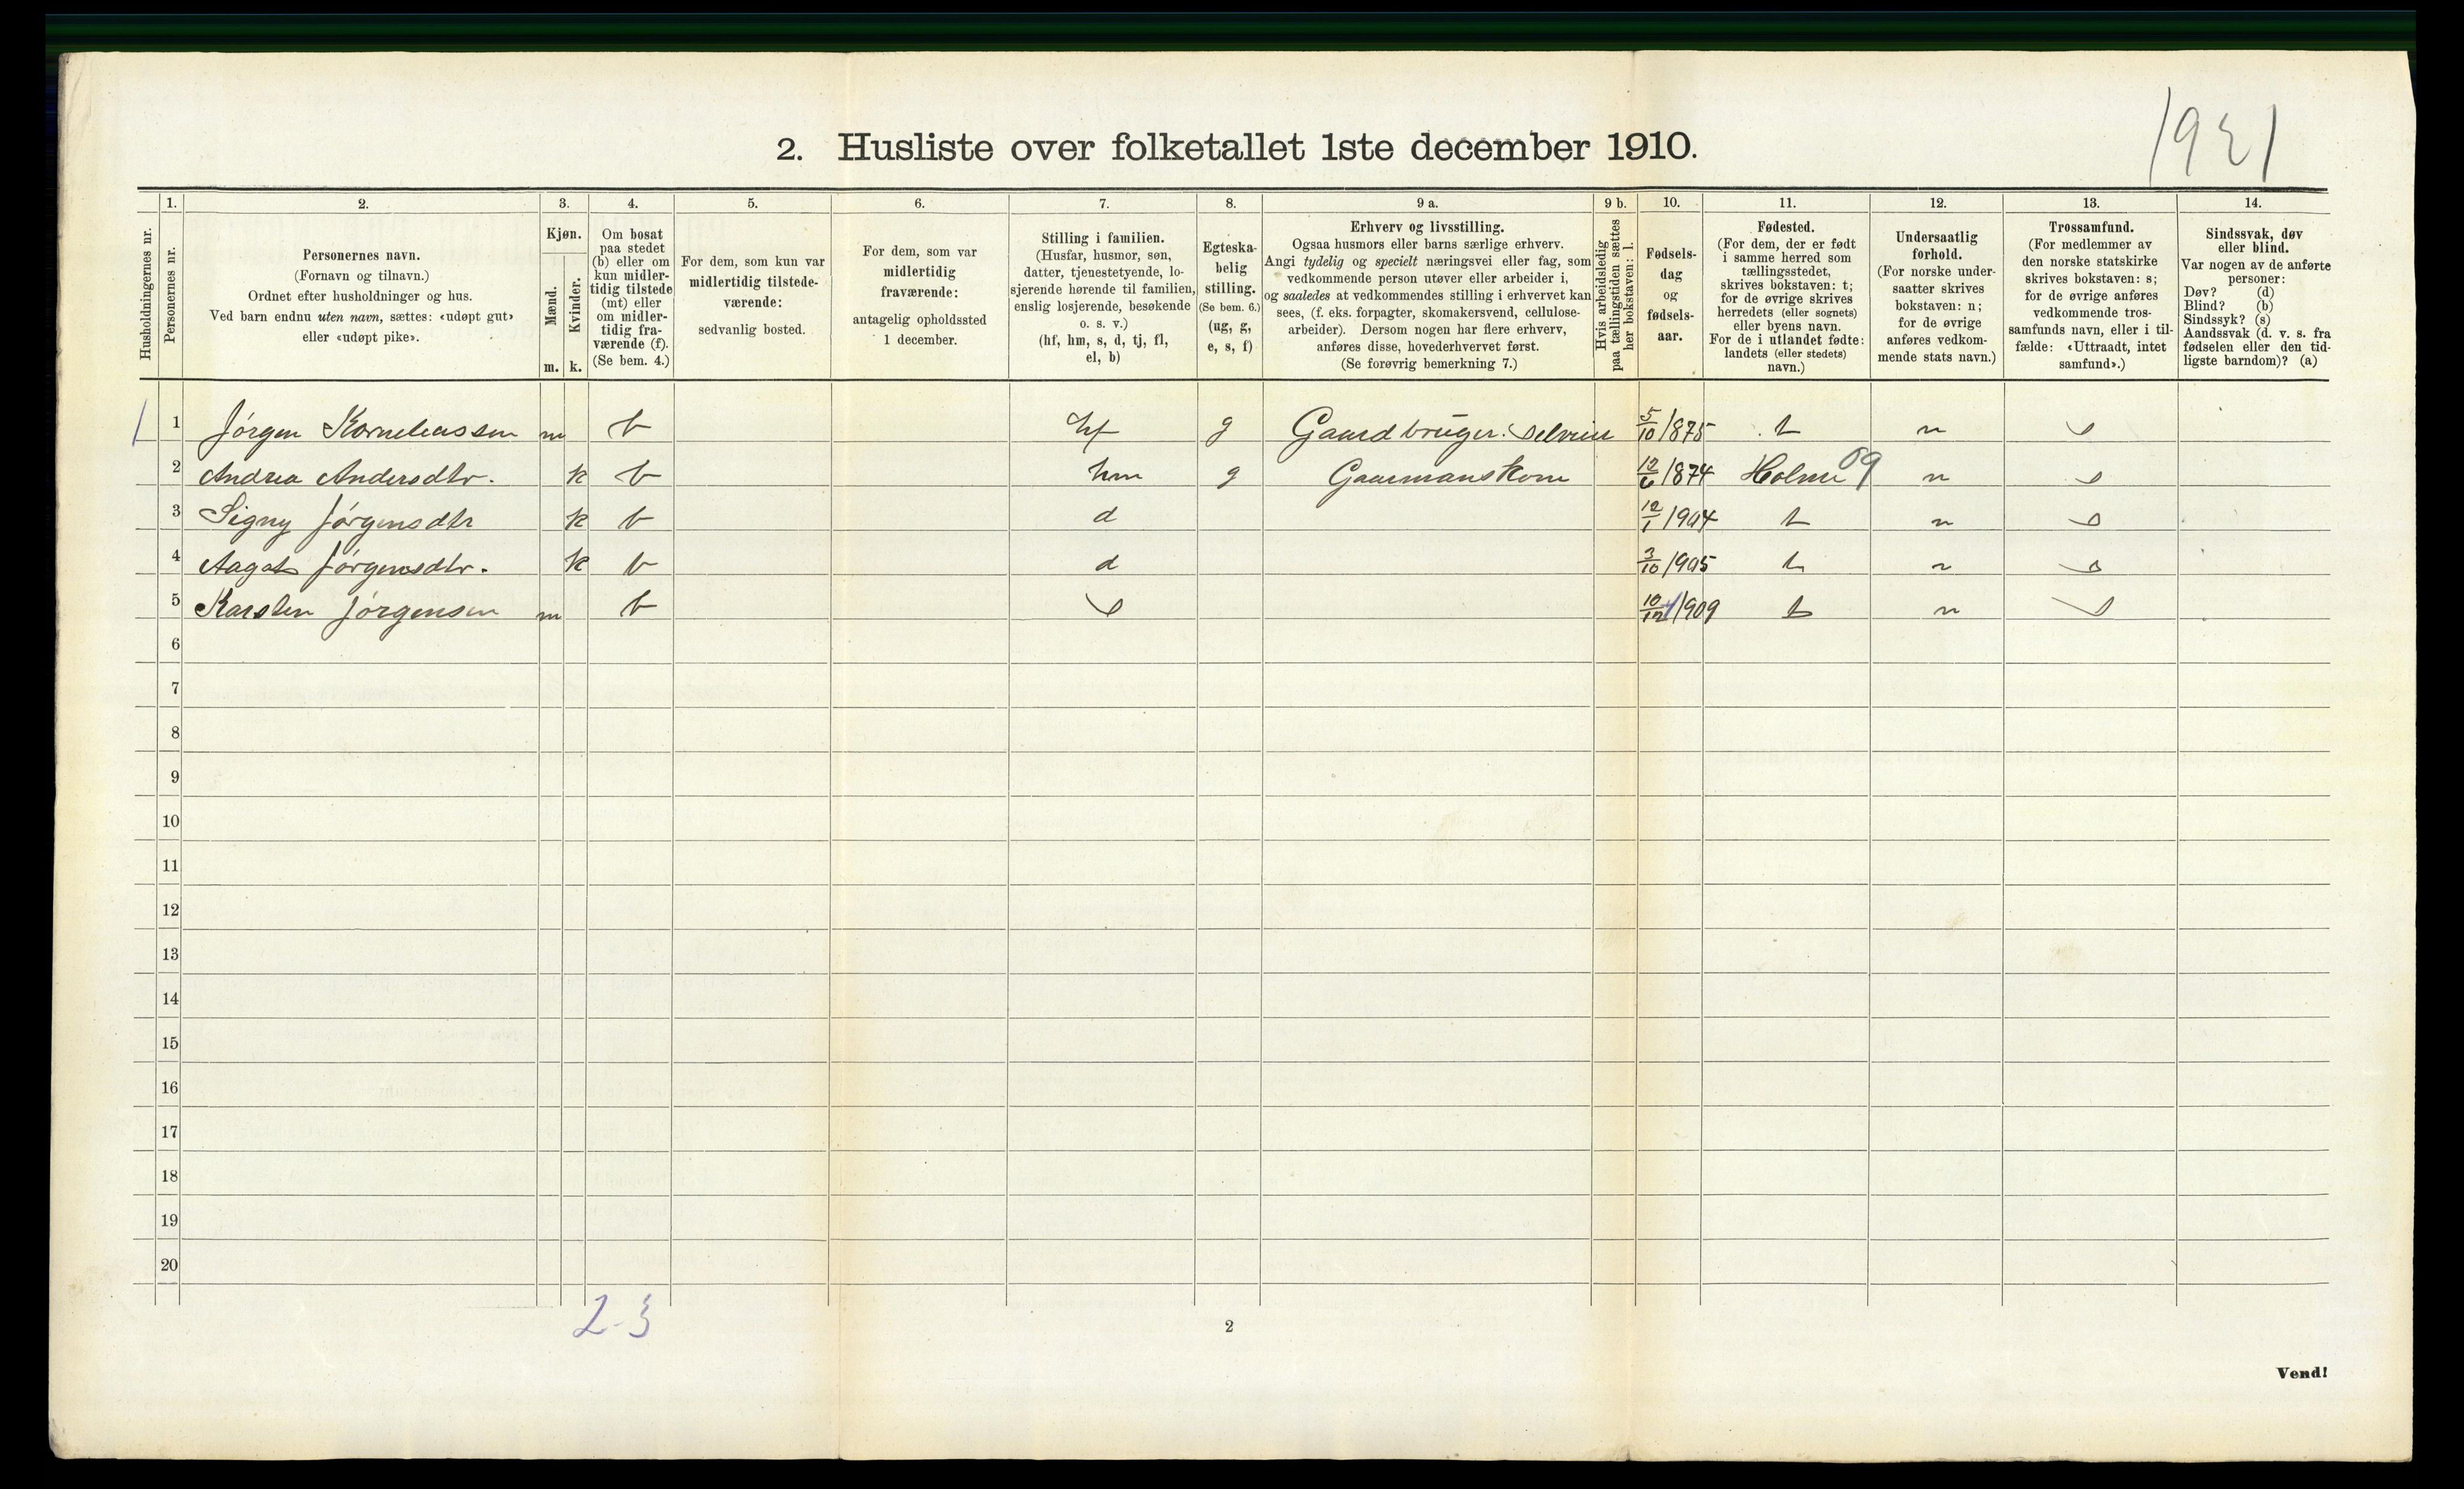 1921
2. Husliste over folketallet 1ste december 1910.
1. 2. 3. 4. 5. 6. 7. 8. 9 a. 9 b. 10. 11. 12. 13. 14.
Husholdningernes nr.
Personernes nr.
Personernes navn.
(Fornavn og tilnavn.)
Ordnet efter husholdninger og hus.
Ved barn endnu uten navn, sættes: «udøpt gut»
eller «udøpt pike».
Kjøn.
Mænd.
Kvinder.
m. k.
Om bosat
paa stedet
(b) eller om
kun midler-
tidig tilstede
(mt) eller
om midler-
tidig fra-
værende (f).
(Se bem. 4.)
For dem, som kun var
midlertidig tilstede-
værende:
sedvanlig bosted.
For dem, som var
midlertidig
fraværende:
antagelig opholdssted
1 december.
Stilling i familien.
(Husfar, husmor, søn,
datter, tjenestetyende, lo-
sjerende hørende til familien,
enslig losjerende, besøkende
o. s. v.)
(hf, hm, s, d, tj, fl,
el, b)
Egteska-
belig
stilling.
(Se bem. 6.)
(ug, g,
e, s, f)
Erhverv og livsstilling.
Ogsaa husmors eller barns særlige erhverv.
Angi tydelig og specielt næringsvei eller fag, som
vedkommende person utøver eller arbeider i,
og saaledes at vedkommendes stilling i erhvervet kan
sees, (f. eks. forpagter, skomakersvend, cellulose-
arbeider). Dersom nogen har flere erhverv,
anføres disse, hovederhvervet først.
(Se forøvrig bemerkning 7.)
Hvis arbeidsledig
paa tællingstiden sættes
her bokstaven: l.
Fødsels-
dag
og
fødsels-
aar.
Fødested.
(For dem, der er født
i samme herred som
tællingsstedet,
skrives bokstaven: t;
for de øvrige skrives
herredets (eller sognets)
eller byens navn.
For de i utlandet fødte:
landets (eller stedets)
navn.)
Undersaatlig
forhold.
(For norske under-
saatter skrives
bokstaven: n;
for de øvrige
anføres vedkom-
mende stats navn.)
Trossamfund.
(For medlemmer av
den norske statskirke
skrives bokstaven: s;
for de øvrige anføres
vedkommende tros-
samfunds navn, eller i til-
fælde: «Uttraadt, intet
samfund».)
Sindssvak, døv
eller blind.
Var nogen av de anførte
personer:
Døv? (d)
Blind? (b)
Sindssyk? (s)
Aandssvak (d. v. s. fra
fødselen eller den tid-
ligste barndom)? (a)
1 1 Jørgen Korneliussen m b hf g Gaardbruger. Selveier 5/10 1875 t n s
2 Andrea Andersdtr. k b hm g Gaarmanskone 12/6 1874 Holme 09 n s
3 Signy Jørgensdtr k b d 12/1 1904 t n s
4 Aagot Jørgensdtr. k b d 3/10 1905 t n s
5 Karsten Jørgensen m b s 10/12 1909 t n s
6
7
8
9
10
11
12
13
14
15
16
17
18
19
20
2-3
2
Vend!